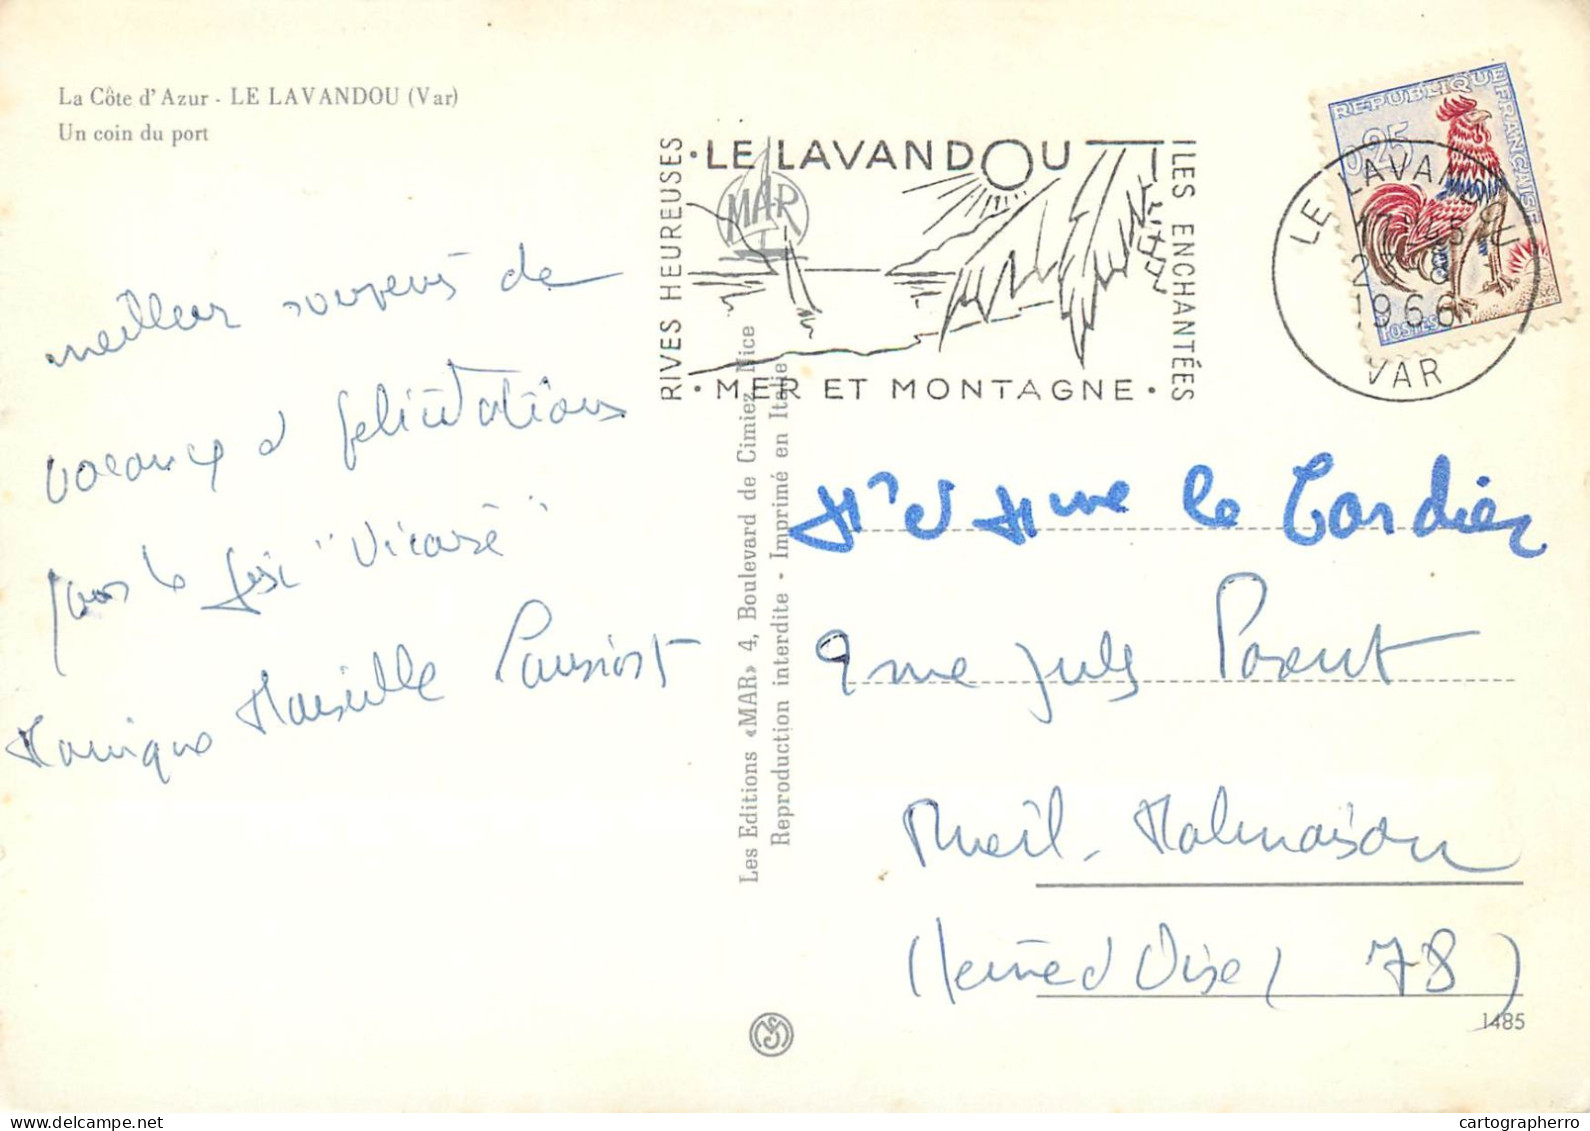 La Côte d'Azur - LE LAVANDOU (Var)
Un coin du port
meilleur souvenir de
vacances et félicitations
pour le
Monique
RIVES HEUREUSES
· LE LAVANDOU
ILES ENCHANTÉES
· MER ET MONTAGNE ·
MAR
REPUBLIQUE FRANÇAISE
0,25
POSTES
LE LAVANDOU
1966
VAR
Les Editions «MAR» 4, Boulevard de Cimiez, Nice
Reproduction interdite - Imprimé en Italie
Mr et Mme le Cordier
9 rue Jules Parent
Rueil-Malmaison
(Seine et Oise) (78)
1485
cartographerro